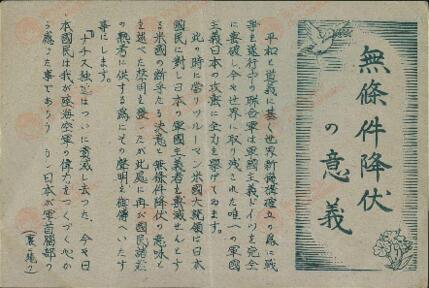 無條件降伏
の意義
平和と道義に基く世界新秩序確立の為に戦
争を遂行中の聯合軍は軍國主義ドイツを完全
に撃破し今や世界に取り残された唯一の軍國
主義日本の攻撃に全力を擧げてゐます。
此の時に當りツルーマン米國大統領は日本
國民に對し日本の軍國主義者を撃滅せんとす
る米國の断乎たる決意と無條件降伏の意味と
を述べた聲明を發したが此處に再び國民諸君
の熟考に供する為にその聲明を御傳へいたす
事にします。
「ナチス独逸はついに壊滅し去つた、今や日
本國民は我が陸海空軍の偉力をつくづく心か
ら感じた事であらう
日本が軍首脳部の
(裏へ続く)